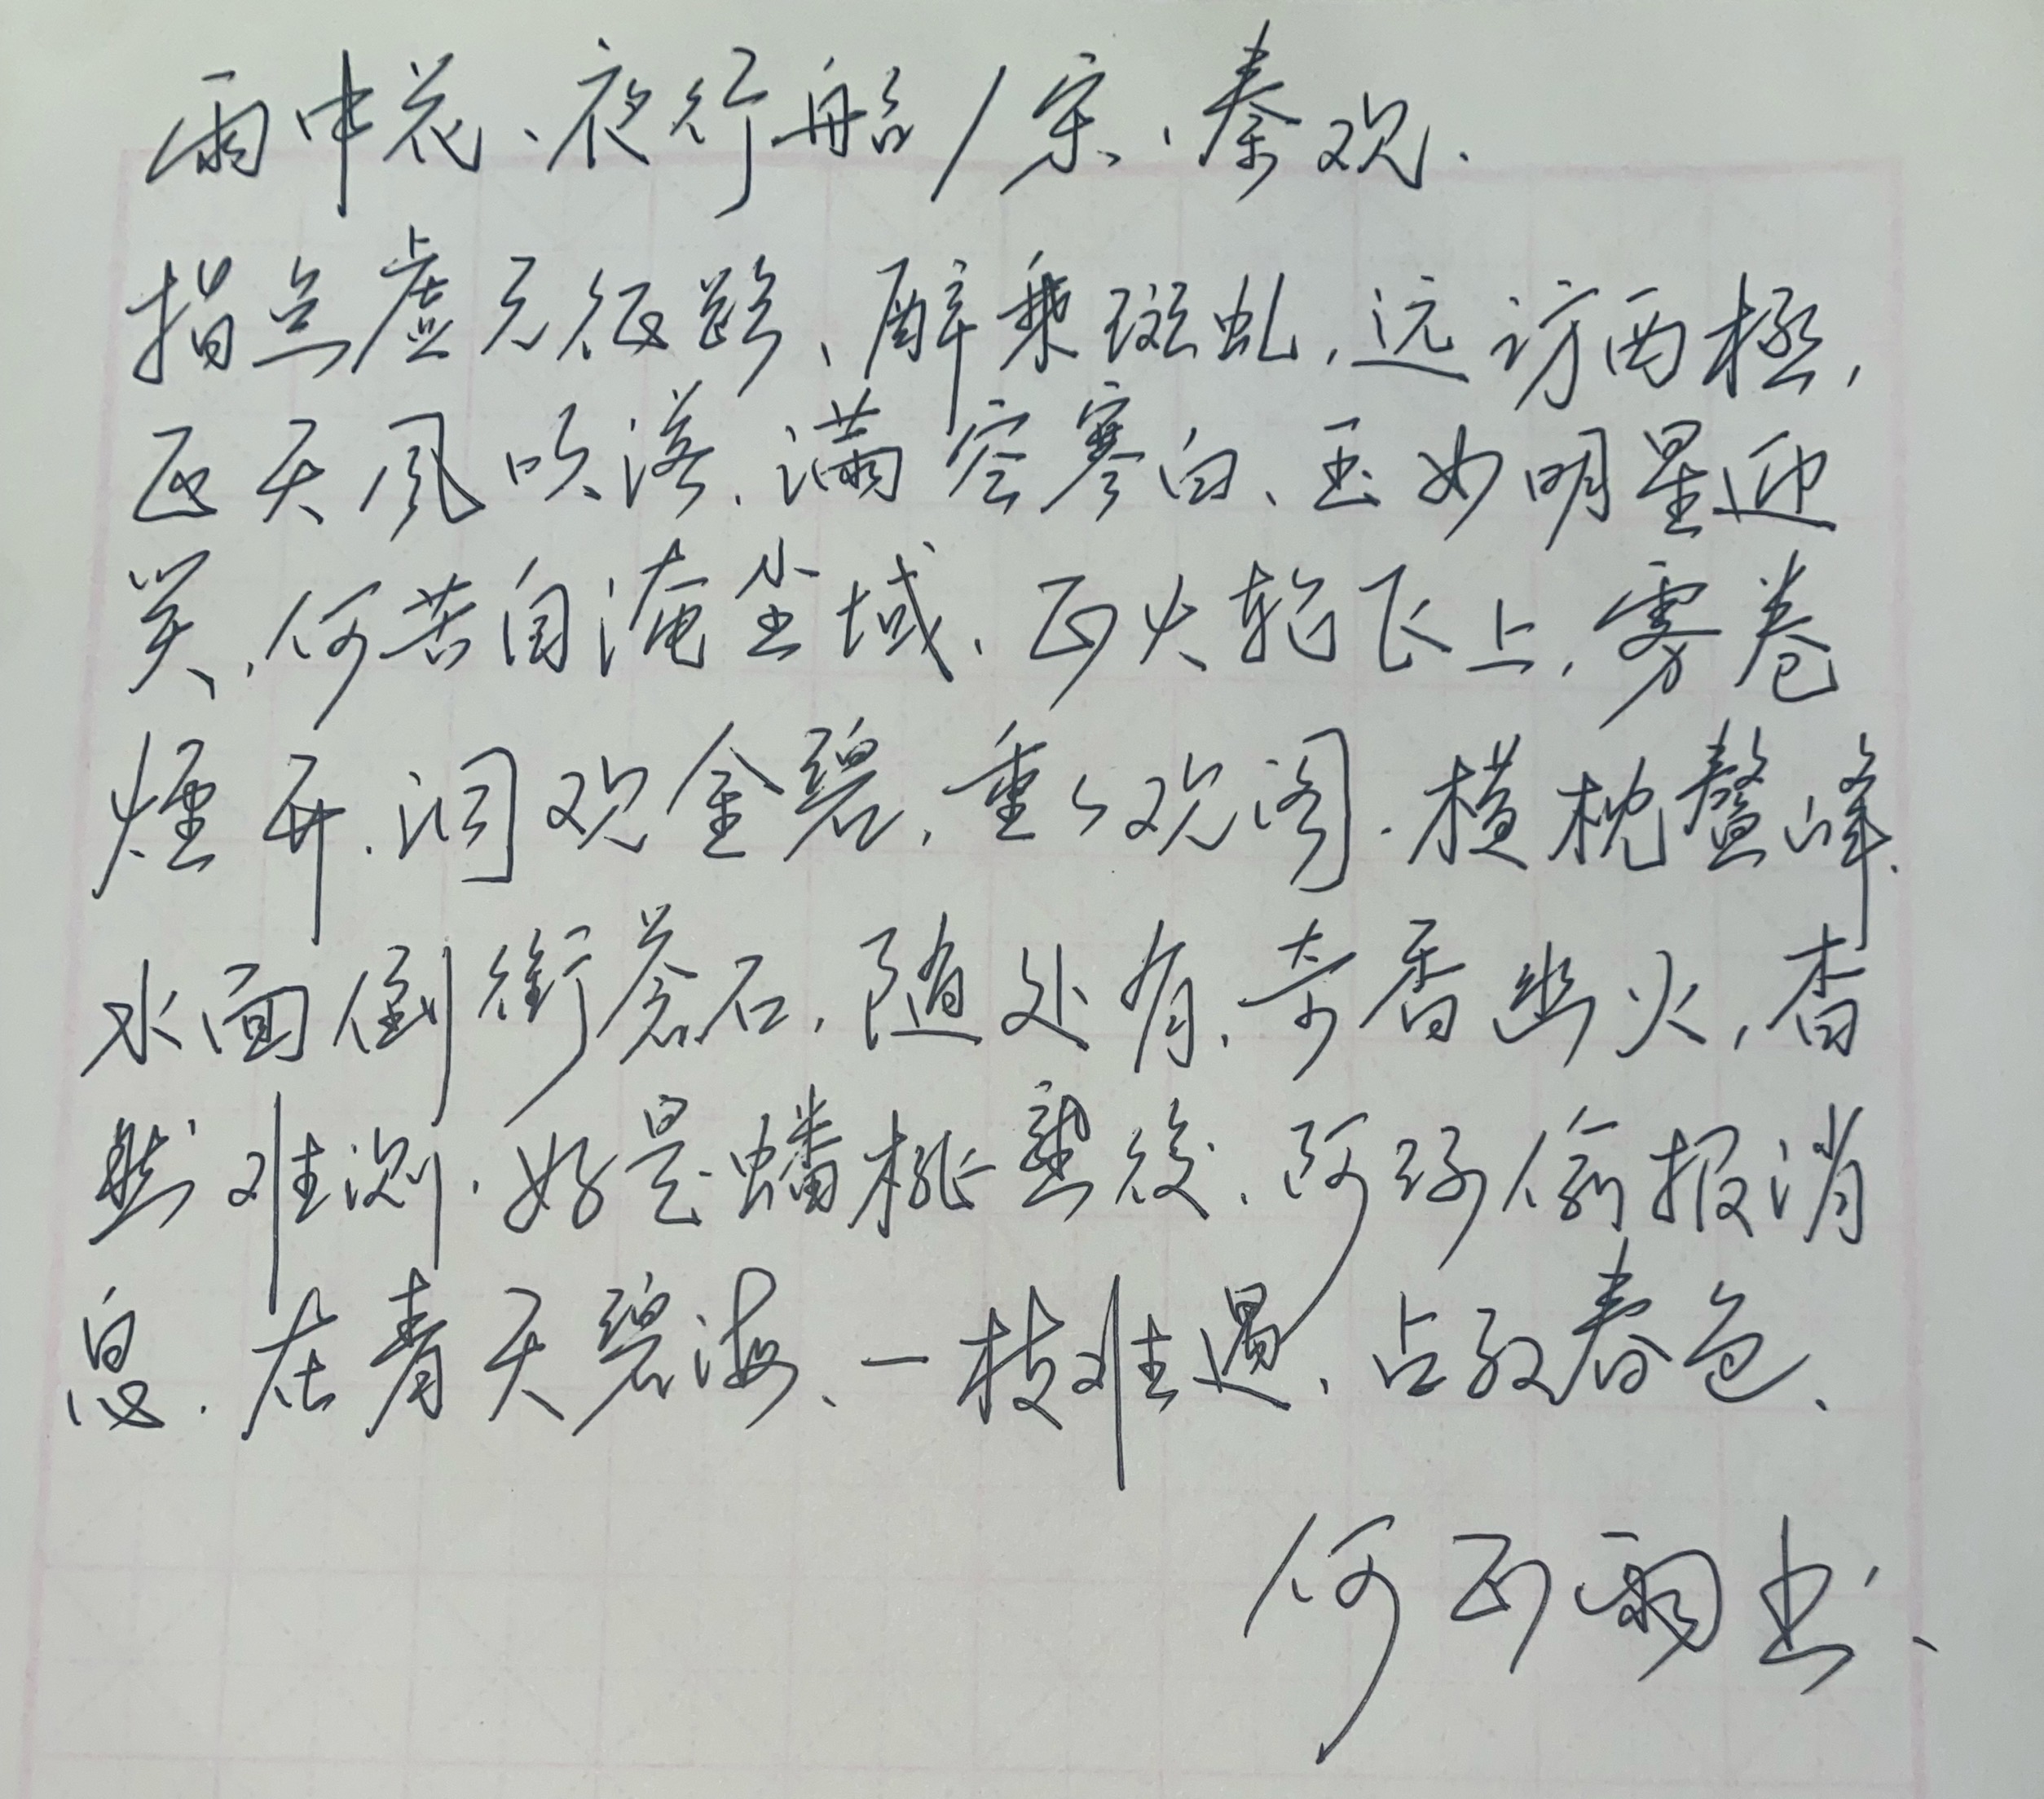 雨中花、夜行船/宋、秦观.
指点虚无征路、醉乘斑虬,远访西极,
正天风吹落、满空寒白、玉女明星迎
笑,何苦自淹尘域、正火轮飞上,雾卷
烟开.洞观金碧,重重观阁.横枕鳌峰.
水面倒衔苍石,随处有,奇香幽火,杳
然难测.好是蟠桃熟後.阿环偷报消
息.在青天碧海、一枝难遇、占取春色、
何正雨书、